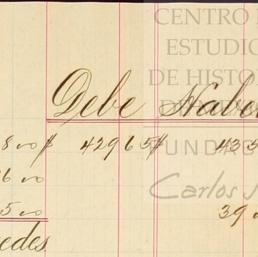 CENTRO
ESTUDIO
DE HISTO
Debe Haber
8 00 $ 42965 $ 435
6 00 FUNDA
Carlos
5 00 39
edes